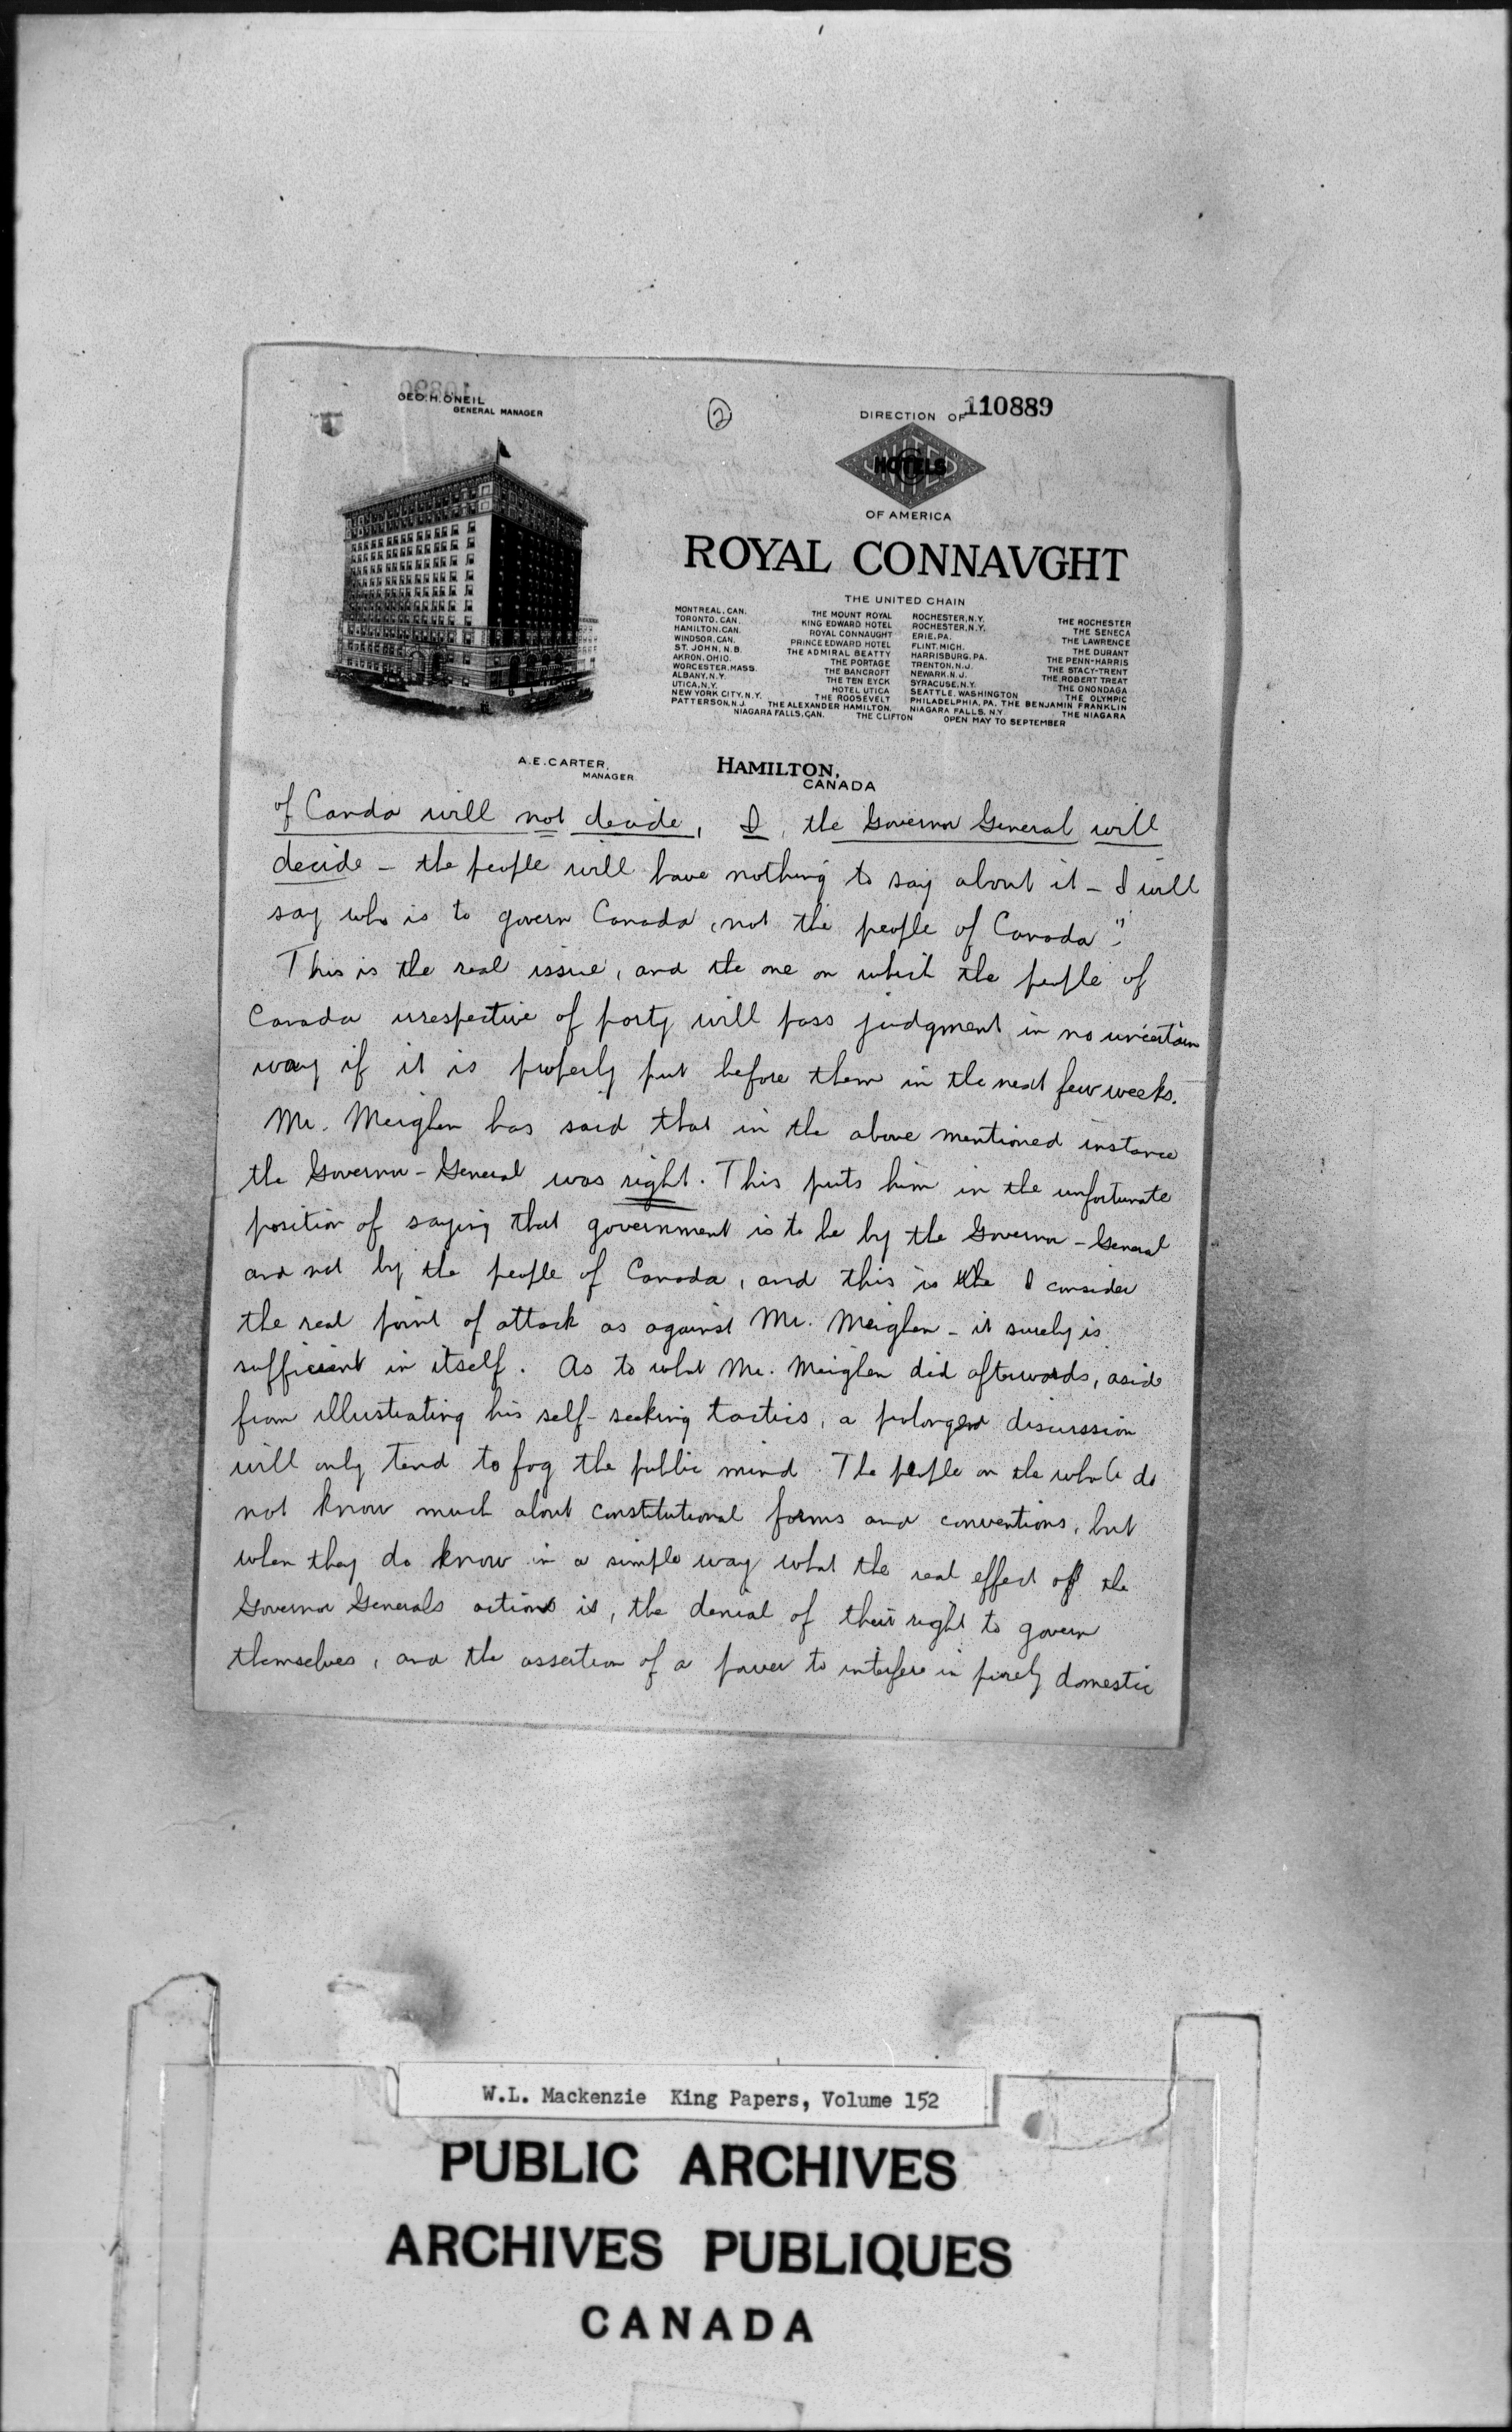 GEO. H. ONEIL
GENERAL MANAGER
②
DIRECTION OF
110889
UNITED HOTELS C
OF AMERICA
ROYAL CONNAVGHT
THE UNITED CHAIN
MONTREAL, CAN. THE MOUNT ROYAL ROCHESTER, N.Y. THE ROCHESTER
TORONTO, CAN. KING EDWARD HOTEL ROCHESTER, N.Y. THE SENECA
HAMILTON, CAN. ROYAL CONNAUGHT ERIE, PA. THE LAWRENCE
WINDSOR, CAN. PRINCE EDWARD HOTEL FLINT, MICH. THE DURANT
ST. JOHN, N.B. THE ADMIRAL BEATTY HARRISBURG, PA. THE PENN-HARRIS
AKRON, OHIO. THE PORTAGE TRENTON, N.J. THE STACY-TRENT
WORCESTER, MASS. THE BANCROFT NEWARK, N.J. THE ROBERT TREAT
ALBANY, N.Y. THE TEN EYCK SYRACUSE, N.Y. THE ONONDAGA
UTICA, N.Y. HOTEL UTICA SEATTLE, WASHINGTON THE OLYMPIC
NEW YORK CITY, N.Y. THE ROOSEVELT PHILADELPHIA, PA. THE BENJAMIN FRANKLIN
PATTERSON, N.J. THE ALEXANDER HAMILTON, NIAGARA FALLS, N.Y. THE NIAGARA
NIAGARA FALLS, CAN. THE CLIFTON OPEN MAY TO SEPTEMBER
A. E. CARTER,
MANAGER
HAMILTON,
CANADA
of Canda will not decide, I, the Governor General will
decide - the people will have nothing to say about it - I will
say who is to govern Canada, not the people of Canada".
This is the real issue, and the one on which the people of
Canada irrespective of party will pass judgment in no uncertain
way if it is properly put before them in the next few weeks.
Mr. Meighen has said that in the above mentioned instance
the Governor-General was right. This puts him in the unfortunate
position of saying that government is to be by the Governor-General
and not by the people of Canada, and this is the I consider
the real point of attack as against Mr. Meighen - it surely is
sufficient in itself. As to what Mr. Meighen did afterwards, aside
from illustrating his self-seeking tactics, a prolonged discussion
will only tend to fog the public mind. The people on the whole do
not know much about constitutional forms and conventions, but
when they do know in a simple way what the real effect of the
Governor Generals actions is, the denial of their right to govern
themselves, and the assertion of a power to interfere in purely domestic
W.L. Mackenzie King Papers, Volume 152
PUBLIC ARCHIVES
ARCHIVES PUBLIQUES
CANADA